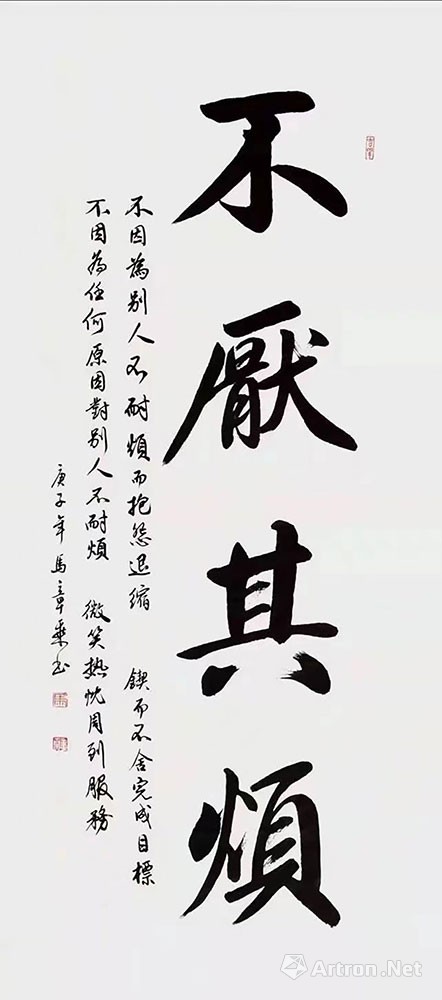 不厭其煩
不因為別人不耐煩而抱怨退縮 鍥而不舍完成目標
不因為任何原因對別人不耐煩 微笑热忱周到服務
庚子年馬章乘书
Artron.Net